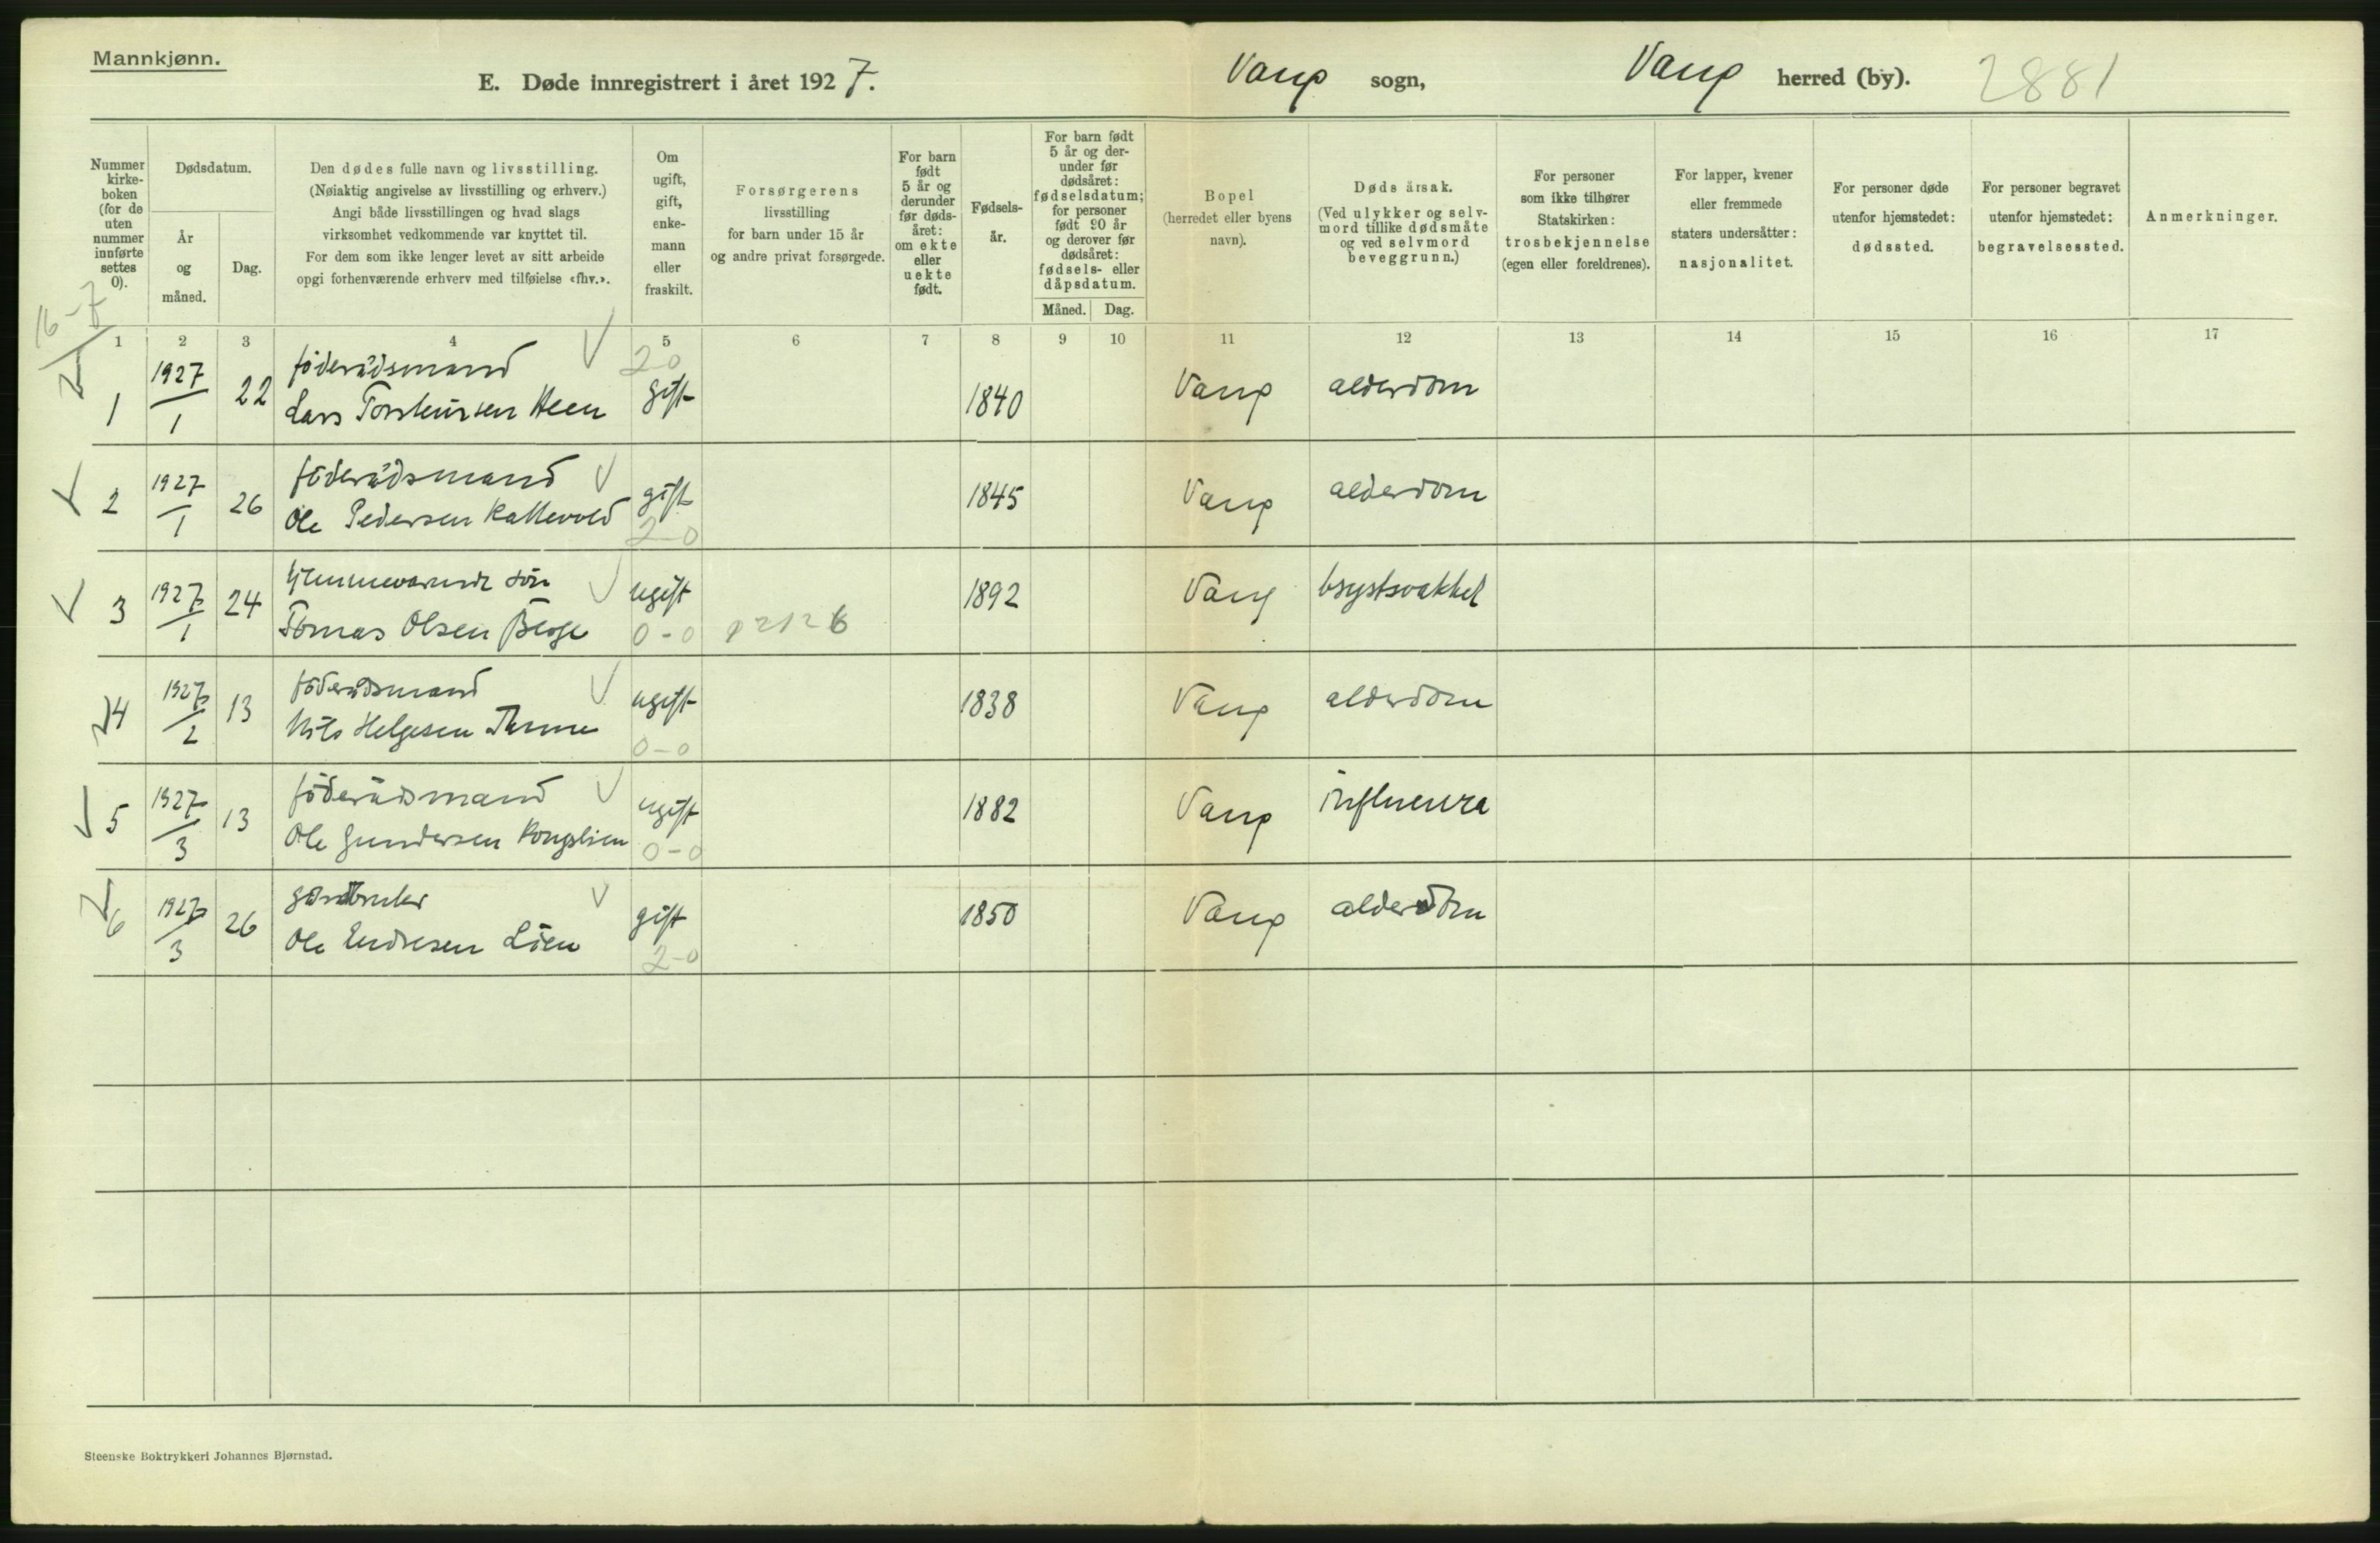 Mannkjønn.
E. Døde innregistrert i året 1927.
Vang sogn,
Vang herred (by).
2881
Nummer
kirke-
boken
(for de
uten
nummer
innførte
settes
0).
Dødsdatum.
År
og
måned.
Dag.
Den dødes fulle navn og livsstilling.
(Nøiaktig angivelse av livsstilling og erhverv.)
Angi både livsstillingen og hvad slags
virksomhet vedkommende var knyttet til.
For dem som ikke lenger levet av sitt arbeide
opgi forhenværende erhverv med tilføielse «fhv.».
Om
ugift,
gift,
enke-
mann
eller
fraskilt.
Forsørgerens
livsstilling
for barn under 15 år
og andre privat forsørgede.
For barn
født
5 år og
derunder
før døds-
året:
om ekte
eller
uekte
født.
Fødsels-
år.
For barn født
5 år og der-
under før
dødsåret:
fødselsdatum;
for personer
født 90 år
og derover før
dødsåret:
fødsels- eller
dåpsdatum.
Måned. Dag.
Bopel
(herredet eller byens
navn).
Døds årsak.
(Ved ulykker og selv-
mord tillike dødsmåte
og ved selvmord
beveggrunn.)
For personer
som ikke tilhører
Statskirken:
trosbekjennelse
(egen eller foreldrenes).
For lapper, kvener
eller fremmede
staters undersåtter:
nasjonalitet.
For personer døde
utenfor hjemstedet:
dødssted.
For personer begravet
utenfor hjemstedet:
begravelsessted.
Anmerkninger.
16-7
1 2 3 4 5 6 7 8 9 10 11 12 13 14 15 16 17
föderådsmand 20
1 1927/1 22 Lars Torsteinsen Heen gift 1840 Vang alderdom
föderådsmand
2 1927/1 26 Ole Pedersen Kattevold gift 1845 Vang alderdom
2-0
hjemmeværende sön
3 1927/1 24 Tomas Olsen Berge ugift 1892 Vang brystsvakhet
0-0
föderådsmand
4 1927/2 13 Nils Helgesen ugift 1838 Vang alderdom
0-0
föderådsmand
5 1927/3 13 Ole Gundersen Kongslien ugift 1882 Vang influenza
0-0
gårdbruker
6 1927/3 26 Ole Endresen Löen gift 1850 Vang alderdom
2-0
Steenske Boktrykkeri Johannes Bjørnstad.